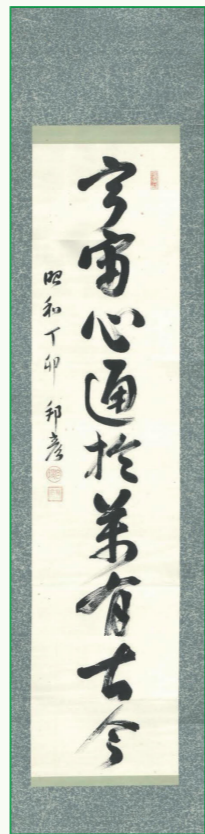 宇宙心通於萬有古今
昭和丁卯 邦彦